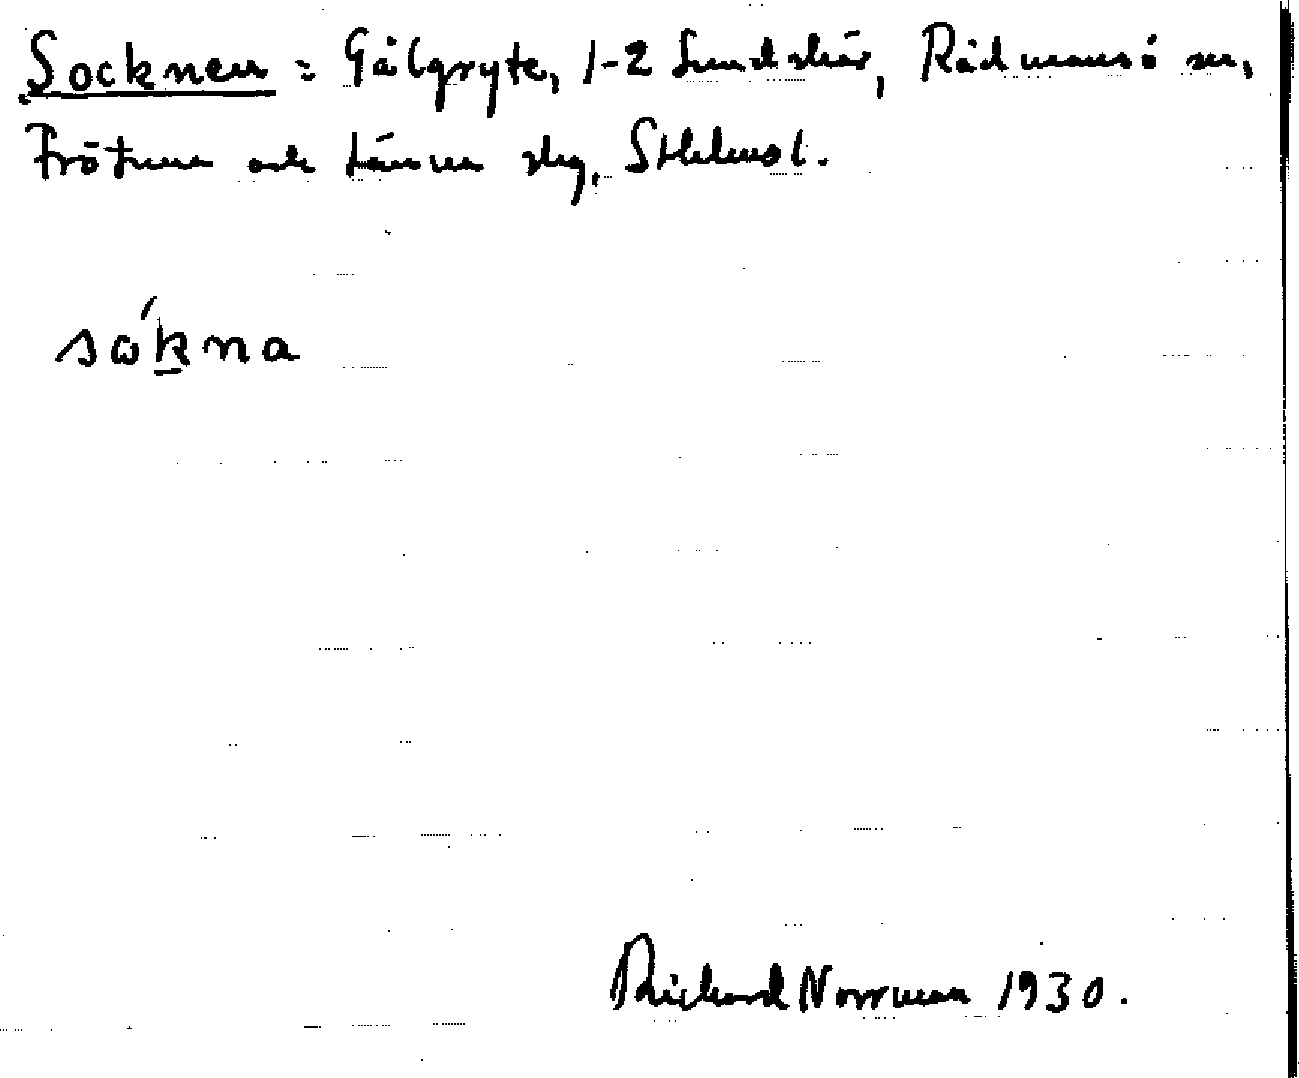 Socknen = Gålgryte, 1-2 Sundskär, Rådmansö sn,
Frötuna och Länna skg, Sthlms l.
sókna
Richard Norrman 1930.